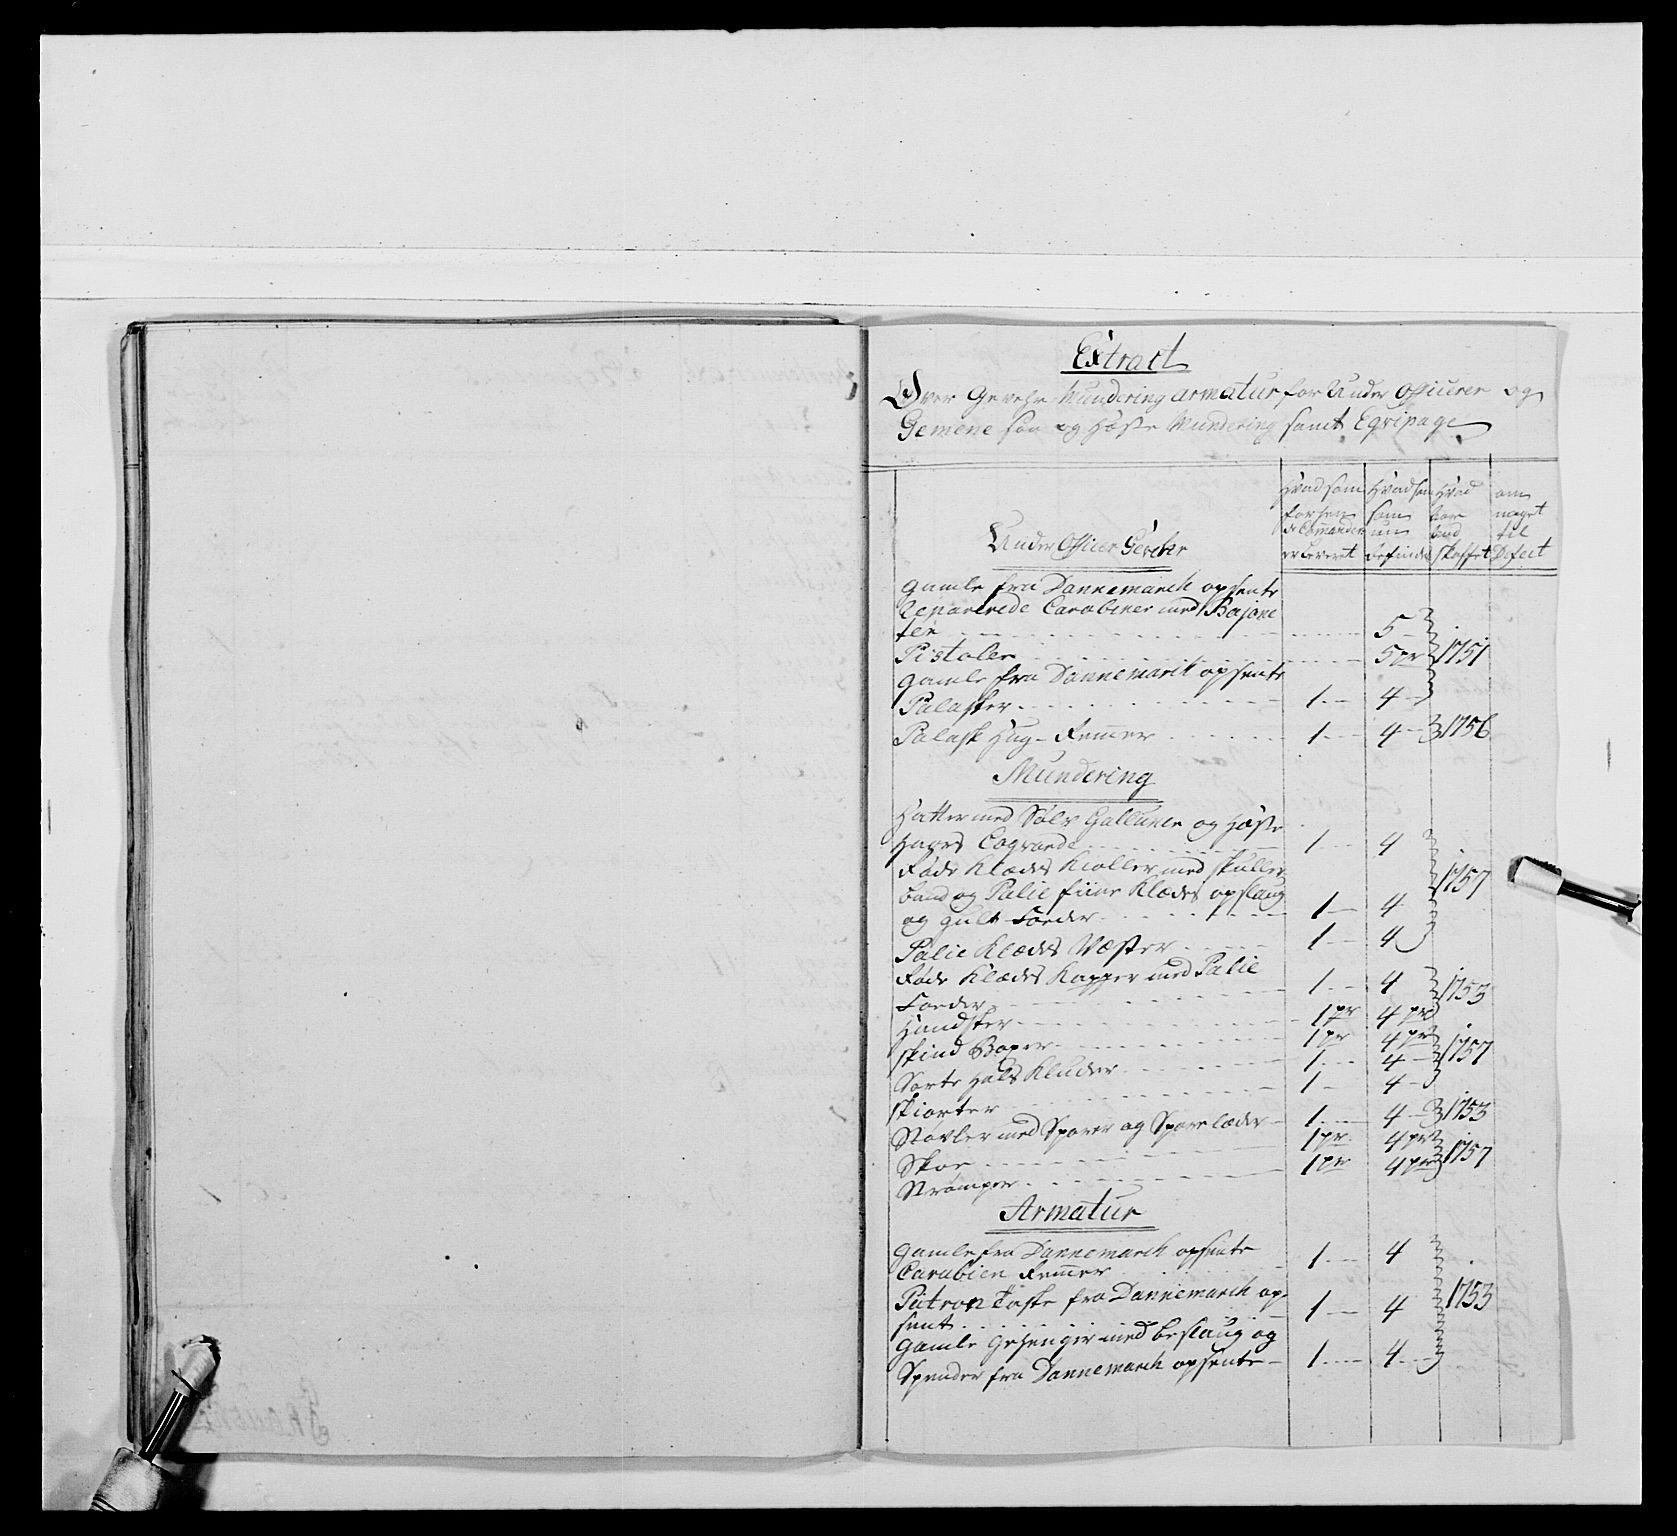 Extract
Over Gevehr Mundering armatur for Under Officerer og
Gemene saa og Heste Mundering samt Eqvipage
Hvad som
forhen
de Commander
er Leveret
Hvad
som
nu
befindes
Hvad
Aar
and
skaffet
om
noget
til
Defect
Under Officer Gevehr
Gamle fra Dannemarck opsente
Reparerede Carabiner med Bajone
ter 5
Pistoler 5 pr 1751
Gamle fra Dannemarck opsente
Palasker 1 4
Palask Hug-Remer 1 4 1756
Mundering
Hatter med Sølv Galluner og Heste
Haars Coqvarde 1 4
Røde Klædes Kioller med skulder
baand og Palie fiine Klædes opslaug
og gult Foeder 1 4 1757
Palie Klædes Væster 1 4
Røde Klædes Kapper med Palie
Foeder 1 4 1753
Handsker 1 pr 4 pr
skind Boxer 1 pr 4 pr
Sorte Hals Kluder 1 4 1757
skiorter 1 4
Støvler med Sporer og Spore læder 1 4 1753
Skoe 1 pr 4 pr
Strømper 1 pr 4 pr 1757
Armatur
Gamle fra Dannemarck opsente
Carabien Remer 1 4
Patron Taske fra Dannemarck op
sent 1 4 1753
Gamle Gehenger med beslaug og
Spender fra Dannemarck opsente 1 4